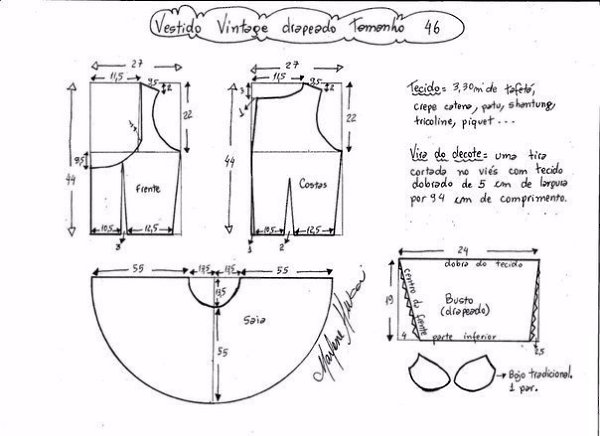 Vestido Vintage drapeado Tamanho 46
27
11,5
9,5
2
22
44
8,5
Frente
10,5
12,5
3
27
11,5
9,5
2
3
1
22
44
Costas
10,5
12,5
1
2
Tecido = 3,30m de tafetá,
crepe catena, patu, shantung,
tricoline, piquet...
Vira do decote = uma tira
cortada no viés com tecido
dobrado de 5 cm de largura
por 94 cm de comprimento.
55
13,5
13,5
55
13,5
Saia
55
Marlene Mukai
24
dobra do tecido
19
centro da frente
Busto
(drapeado)
4
parte inferior
2,5
Bojo tradicional.
1 par.